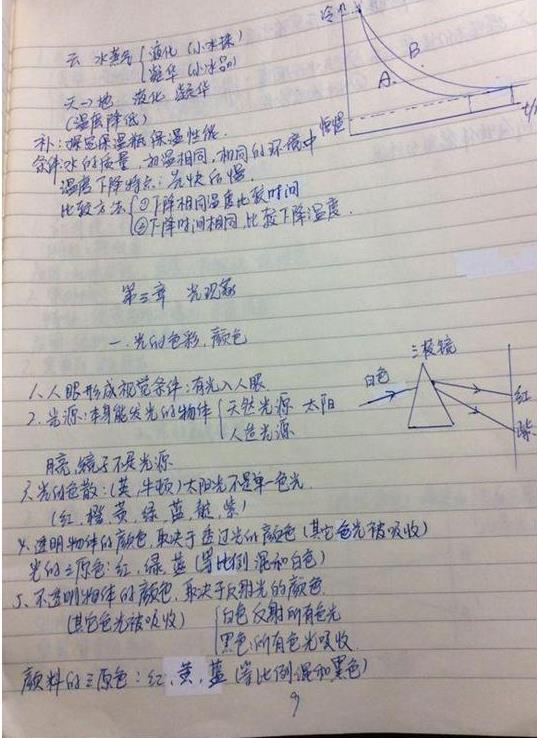 云 水蒸气 { 液化 (小水珠)
凝华 (小冰晶)
天→地 液化 凝华
(温度降低)
补:探究保温瓶保温性能.
条件水的质量,初温相同,相同的环境中
温度下降特点:先快后慢.
比较方法 { ①下降相同温度比较时间
②下降时间相同,比较下降温度.
A
B
t/
第三章 光现象
一.光的色彩,颜色
1.人眼形成视觉条件:有光入人眼.
2.光源:本身能发光的物体 { 天然光源 太阳
人造光源
月亮,镜子不是光源
三棱镜
白色
红
紫
3.光的色散:(英,牛顿)太阳光不是单一色光.
(红,橙,黄,绿,蓝,靛,紫)
4.透明物体的颜色,取决于透过光的颜色(其它色光被吸收)
光的三原色:红,绿,蓝(等比例混和白色)
5.不透明物体的颜色,取决于反射光的颜色.
(其它色光被吸收) { 白色反射所有色光
黑色:所有色光吸收.
颜料的三原色:红,黄,蓝(等比例混和黑色)
9